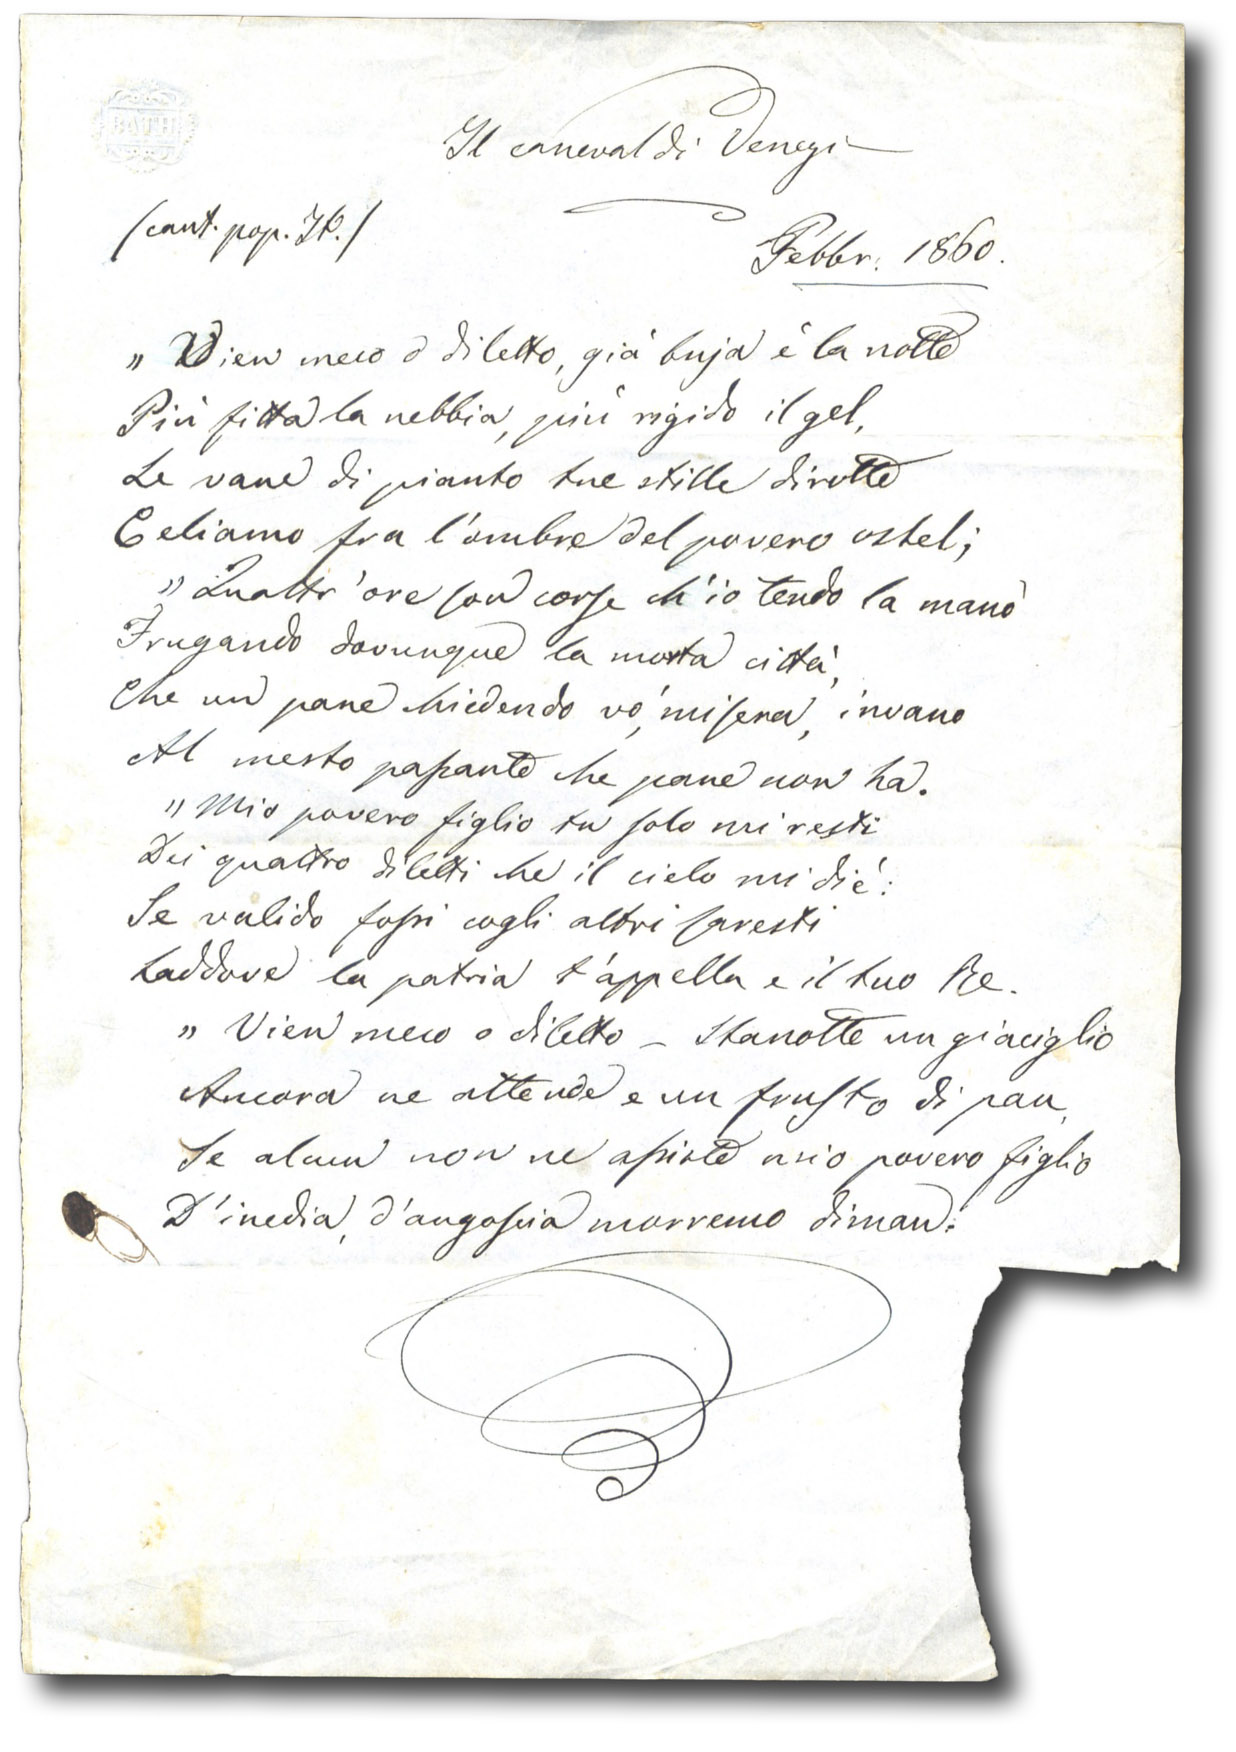 BATH
Il carneval di Venezi
(cant. pop. It.)
Febbr. 1860.
„ Vien meco o diletto, già buja è la notte
Più fitta la nebbia, più rigido il gel,
Le vane di pianto tue stille dirotte
Celiamo fra l'ombre del povero ostel;
„ Quattr'ore son corse ch'io tendo la mano
Frugando dovunque la morta città,
Che un pane chiedendo vo', misera, invano
Al mesto passante che pane non ha.
„ Mio povero figlio tu solo mi resti
Dei quattro diletti che il cielo mi diè:
Se valido fossi cogli altri saresti
Laddove la patria t'appella e il tuo Re.
„ Vien meco o diletto – stanotte un giaciglio
Ancora ne attende e un frusto di pan,
Se alcun non ne assiste mio povero figlio
D'inedia, d'angoscia morremo diman.